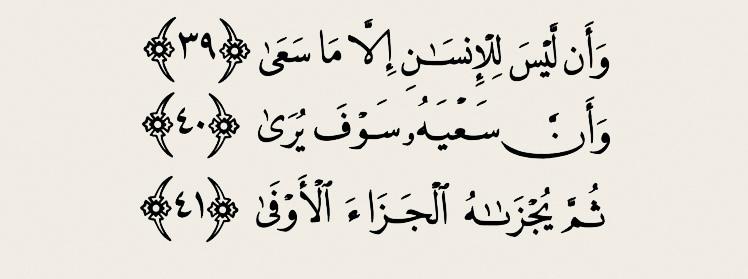 وَأَن لَّيْسَ لِلْإِنسَـٰنِ إِلَّا مَا سَعَىٰ ﴿٣٩﴾
وَأَنَّ سَعْيَهُۥ سَوْفَ يُرَىٰ ﴿٤٠﴾
ثُمَّ يُجْزَىٰهُ ٱلْجَزَاءَ ٱلْأَوْفَىٰ ﴿٤١﴾